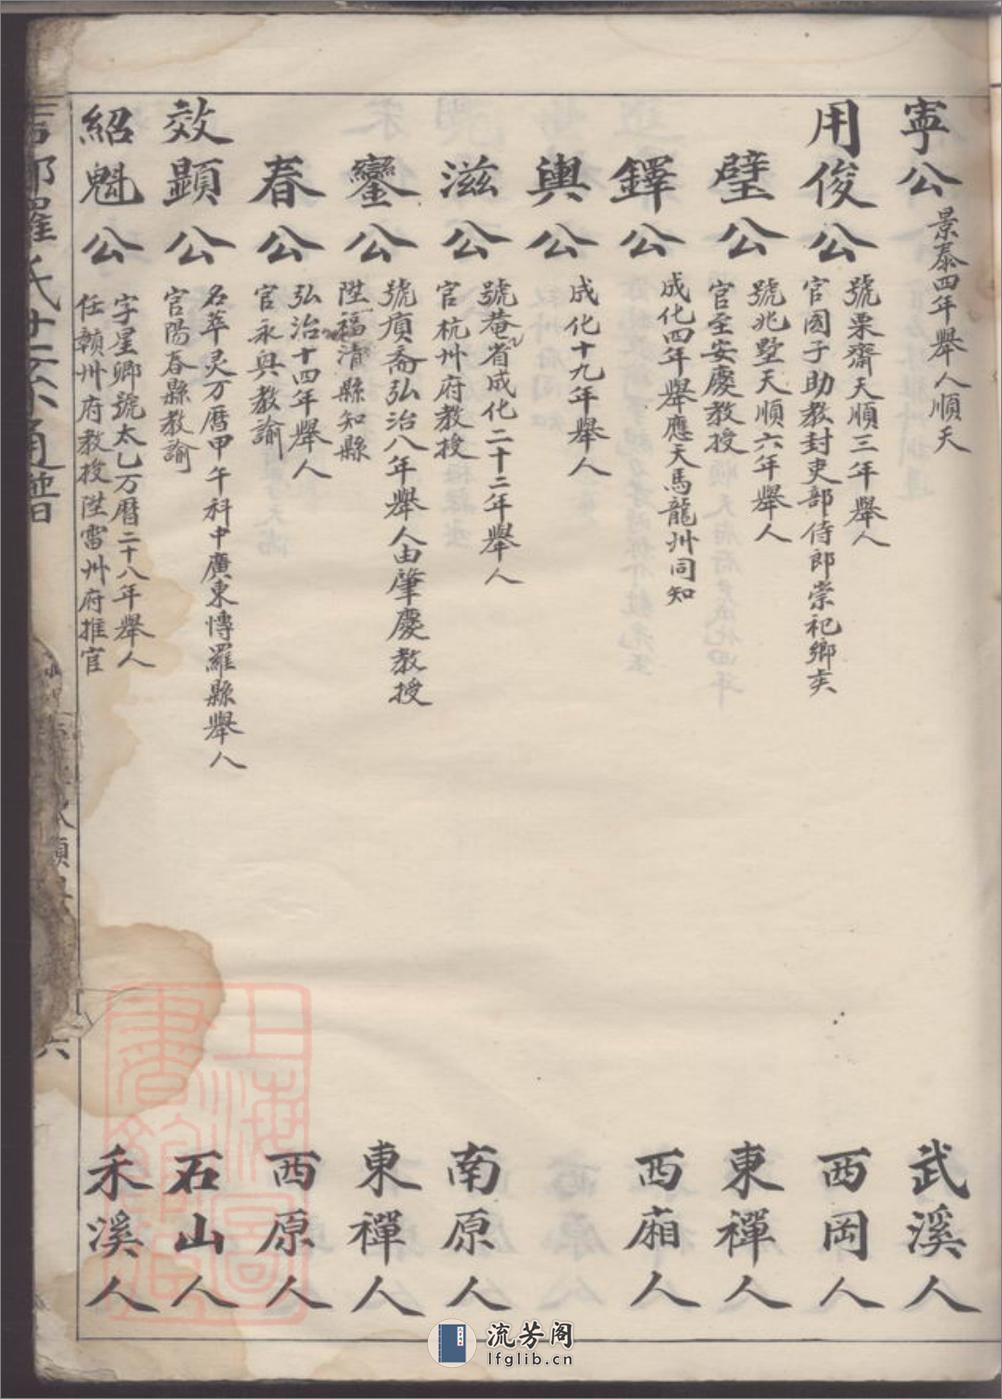 寧公 景泰四年舉人順天 武溪人
用俊公 號栗齋天順三年舉人
官國子助教封吏部侍郎崇祀鄉賢 西岡人
璧公 號兆墅天順六年舉人
官至安慶教授 東禪人
鐸公 成化四年舉應天馬龍州同知 西廂人
輿公 成化十九年舉人
滋公 號巷省成化二十二年舉人
官杭州府教授 南原人
鑾公 號貭斋弘治八年舉人由肇慶教授
陞福清縣知縣 東禪人
春公 弘治十四年舉人
官永興教諭 西原人
效顕公 名萃灵万曆甲午科中廣東愽羅縣舉人
官陽春縣教諭 石山人
紹魁公 字星卿號太乙万曆二十八年舉人
任贛州府教授陞雷州府推官 禾溪人
羅氏
通譜
六
上海圖書館藏
流芳阁
lfglib.cn